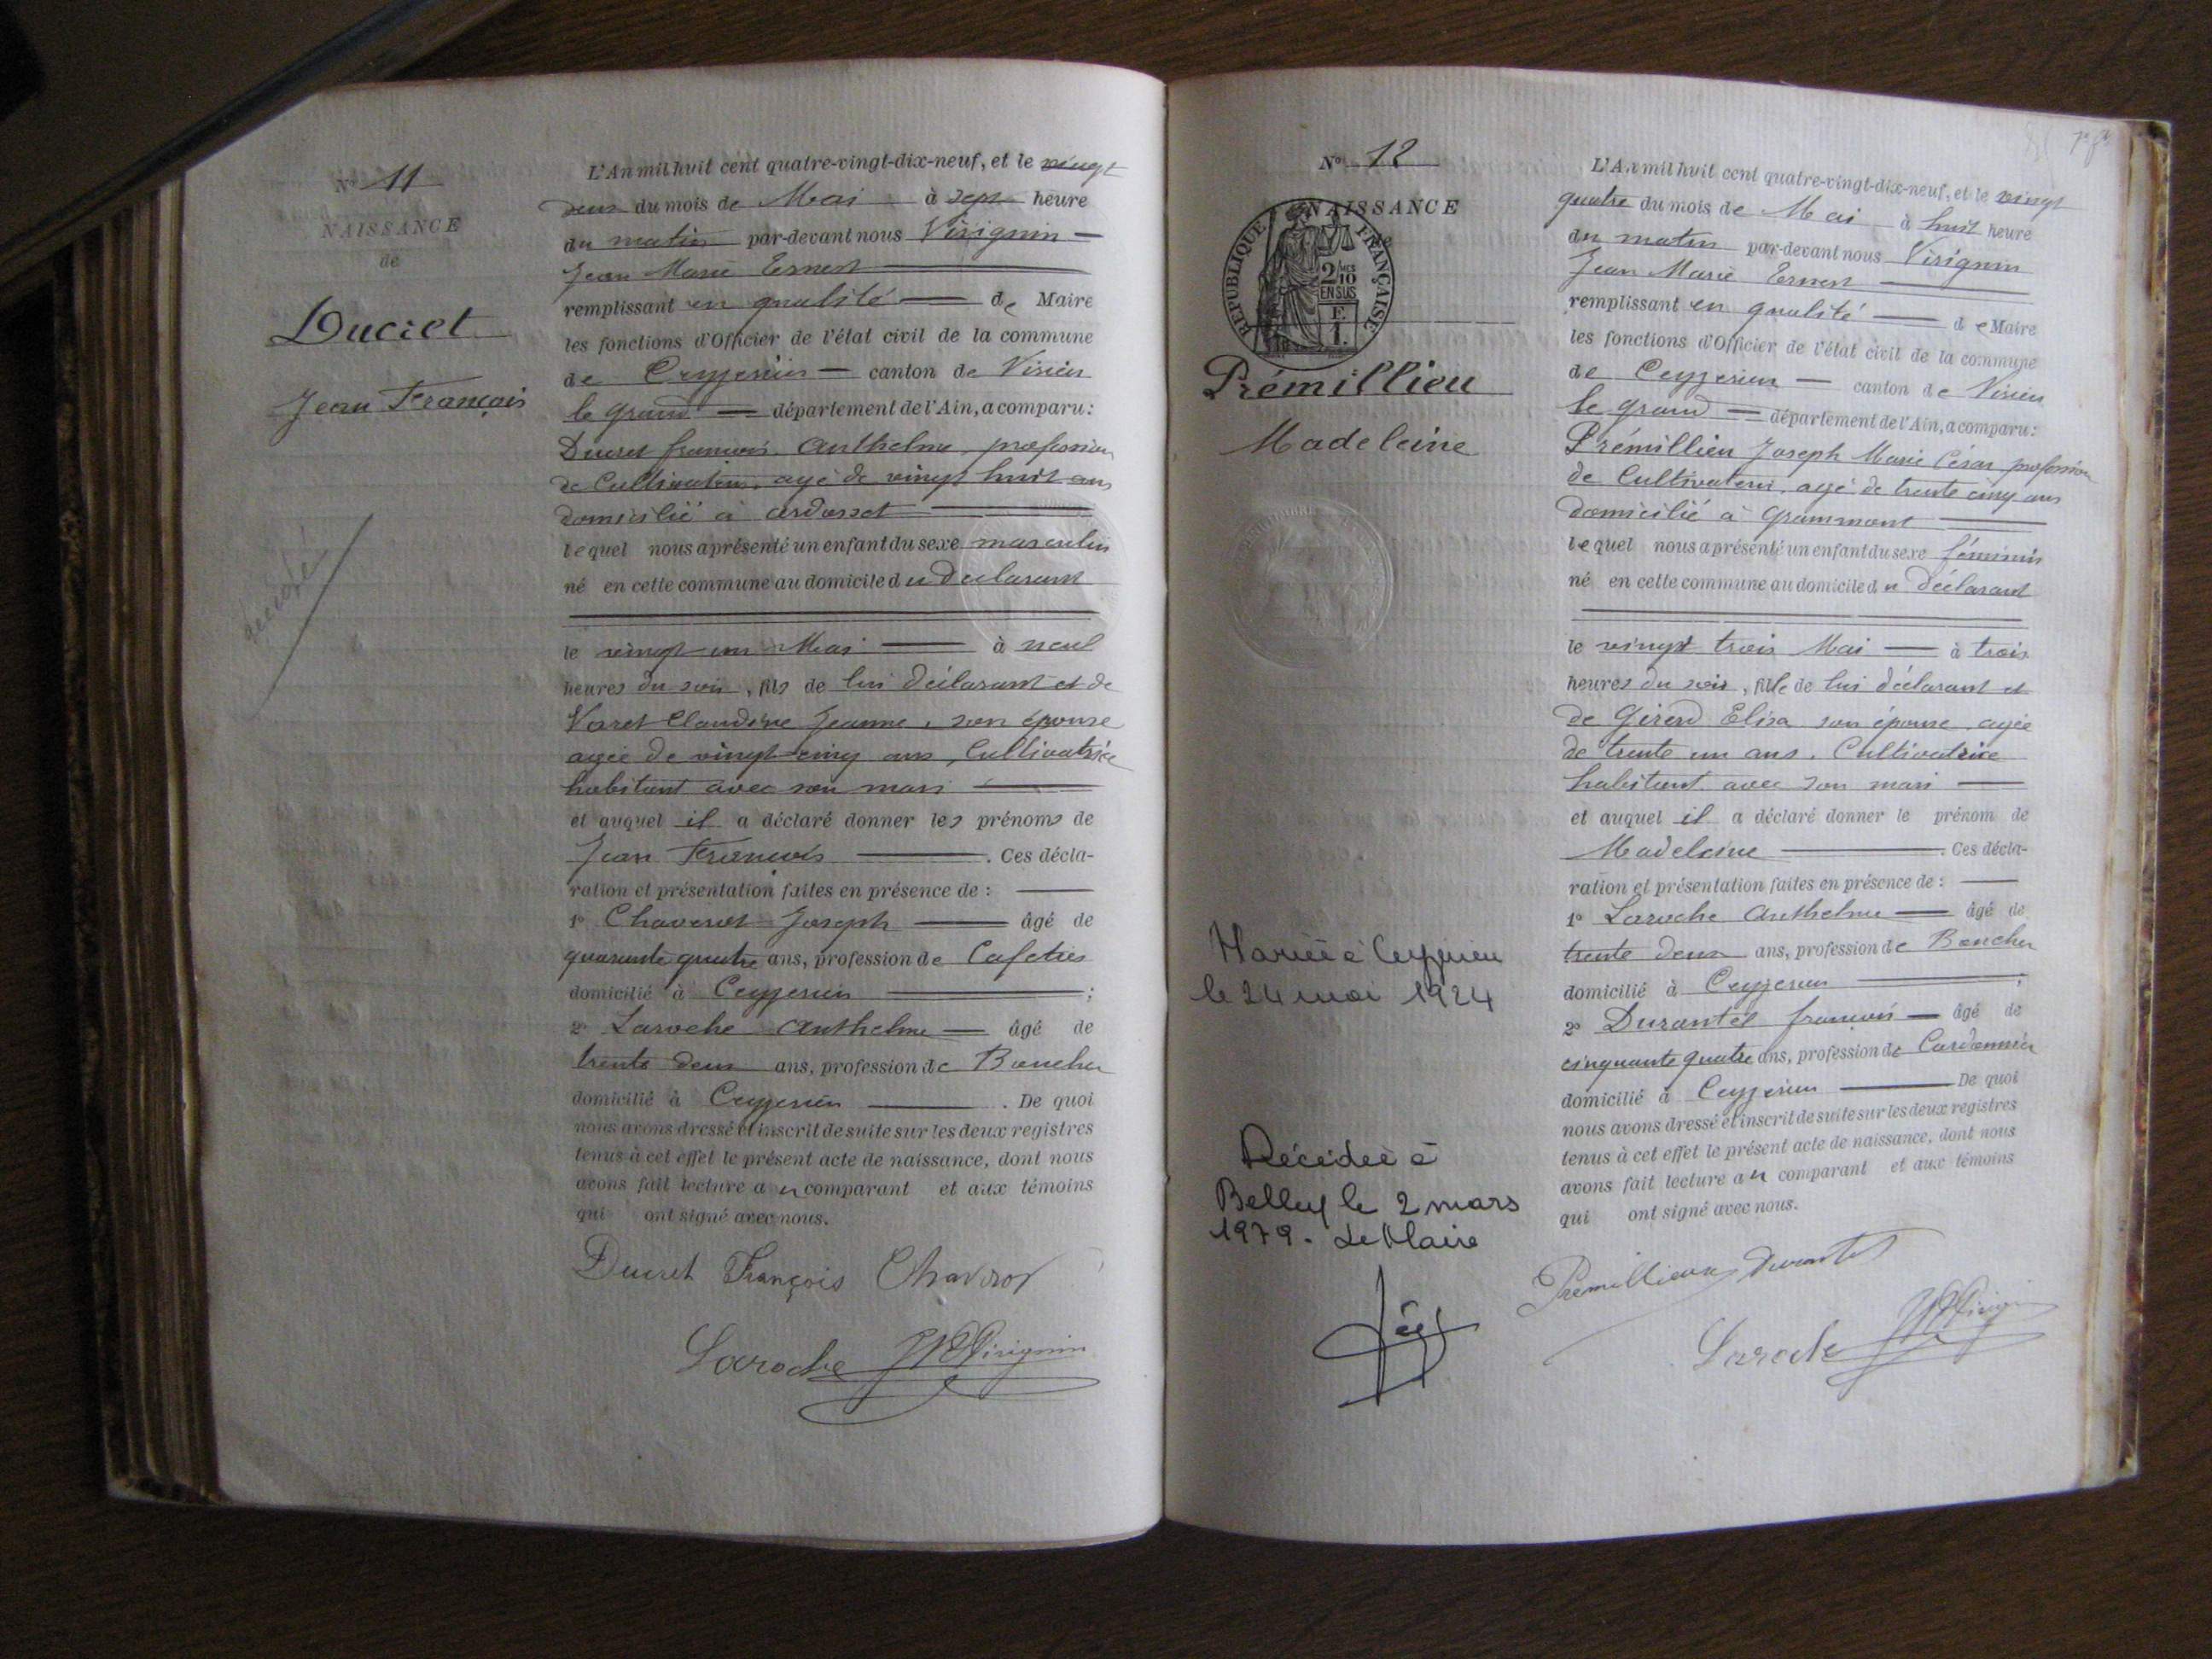 N° 11
NAISSANCE
de
Ducret
Jean François
décédé
L'An mil huit cent quatre-vingt-dix-neuf, et le vingt
deux du mois de Mai à sept heure
du matin par-devant nous Virignin
Jean Marie Ernest
remplissant en qualité de Maire
les fonctions d'Officier de l'état civil de la commune
de Ceyzerieu canton de Virieu
le grand département de l'Ain, a comparu:
Ducret françois Anthelme, profession
de Cultivateur, agé de vingt huit ans
domicilié à ardosset
lequel nous a présenté un enfant du sexe masculin
né en cette commune au domicile du déclarant
le vingt un Mai à neuf
heures du soir, fils de lui déclarant et de
Claudine Jeanne, son épouse
agée de vingt cinq ans, Cultivatrice
habitant avec son mari
et auquel il a déclaré donner les prénoms de
Jean François. Ces décla-
ration et présentation faites en présence de :
1° Chaverot Joseph âgé de
quarante quatre ans, profession de Cafetier
domicilié à Ceyzerieu ;
2° Laroche Anthelme âgé de
trente deux ans, profession de Boucher
domicilié à Ceyzerieu . De quoi
nous avons dressé et inscrit de suite sur les deux registres
tenus à cet effet le présent acte de naissance, dont nous
avons fait lecture au comparant et aux témoins
qui ont signé avec nous.
Ducret François Chaverot
Laroche JME Virignin
N° 12
NAISSANCE
de
REPUBLIQUE FRANÇAISE
2/10 MES
EN SUS
F.
1.
Prémillieu
Madeleine
Mariée à Ceyzerieu
le 24 mai 1924
Décédée à
Belley le 2 mars
1979. Le Maire
L'An mil huit cent quatre-vingt-dix-neuf, et le vingt
quatre du mois de Mai à huit heure
du matin par-devant nous Virignin
Jean Marie Ernest
remplissant en qualité de Maire
les fonctions d'Officier de l'état civil de la commune
de Ceyzerieu canton de Virieu
le grand département de l'Ain, a comparu:
Prémillieu Joseph Marie César profession
de Cultivateur, agé de trente cinq ans
domicilié à Grammont
lequel nous a présenté un enfant du sexe féminin
né en cette commune au domicile du déclarant
le vingt trois Mai à trois
heures du soir, fille de lui déclarant et
de Girerd Elisa son épouse agée
de trente un ans, Cultivatrice
habitant avec son mari
et auquel il a déclaré donner le prénom de
Madeleine. Ces décla-
ration et présentation faites en présence de :
1° Laroche Anthelme âgé de
trente deux ans, profession de Boucher
domicilié à Ceyzerieu ;
2° Durantel françois âgé de
cinquante quatre ans, profession de Cordonnier
domicilié à Ceyzerieu De quoi
nous avons dressé et inscrit de suite sur les deux registres
tenus à cet effet le présent acte de naissance, dont nous
avons fait lecture au comparant et aux témoins
qui ont signé avec nous.
Prémillieux Durantel
Laroche JME Virignin